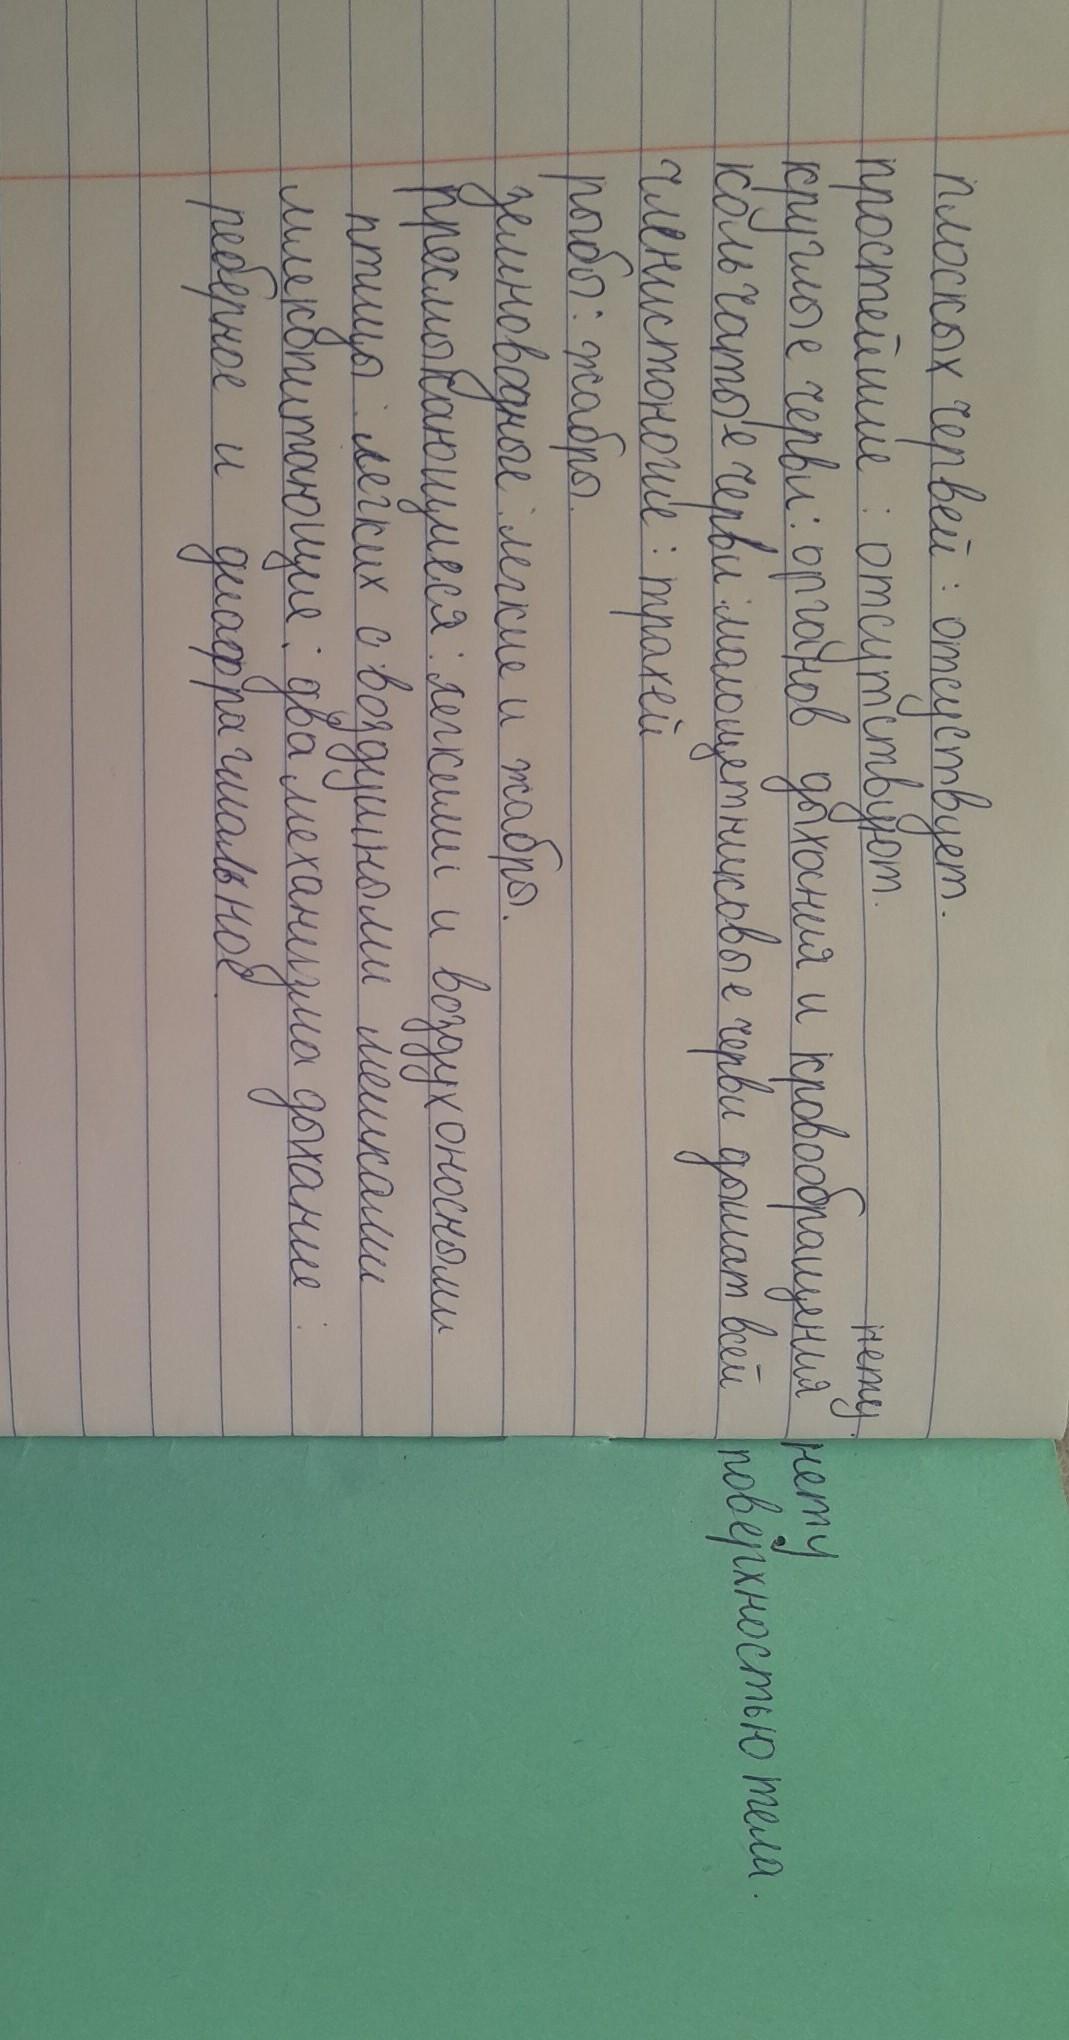 плоских червей : отсуствует.
простейшие : отсутствуют.
круглые черви : органов дыхания и кровообращения нету
нету.
кольчатые черви : малощетниковые черви дышат всей поверхностью тела.
членистоногие : трахей
рыбы : жабры.
земноводные : легкие и жабры.
пресмыкающиеся : легкими и воздухоносными
птицы : легких с воздушными мешками
млекопитающие : два механизма дыхание :
реберное и диафрагмально.